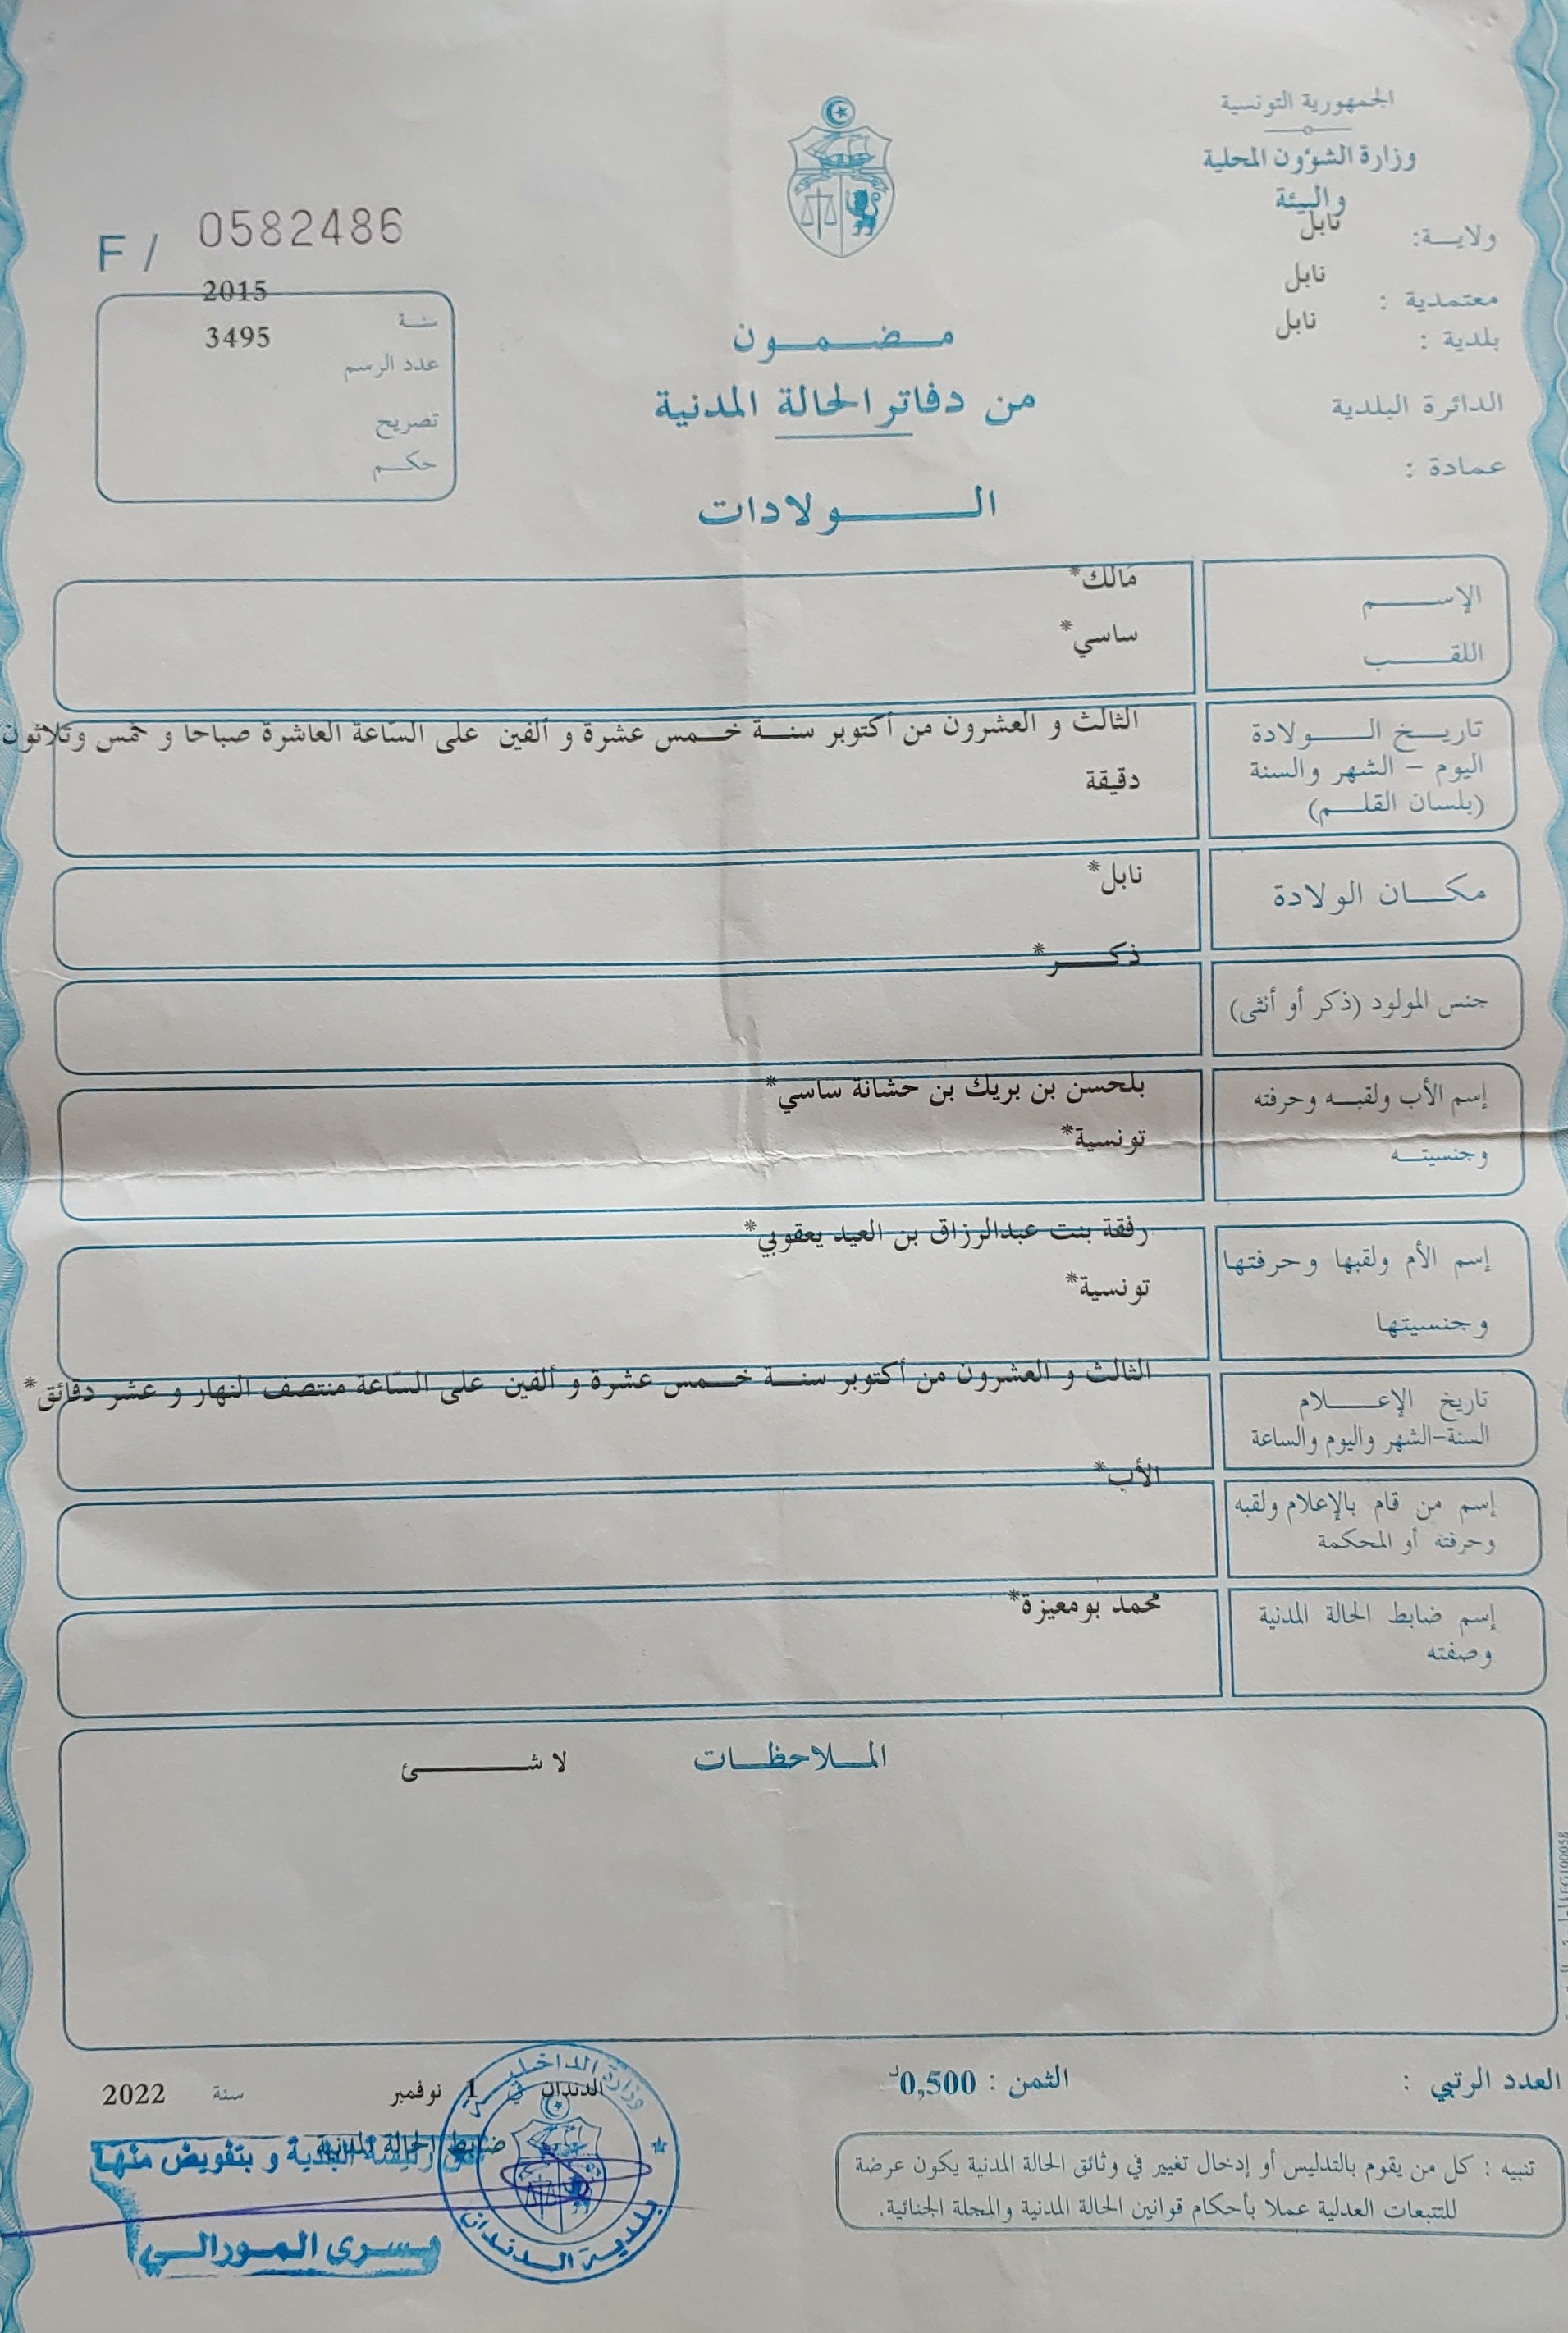 الجمهورية التونسية
وزارة الشؤون المحلية
والبيئة
ولايــة: نابل
معتمدية : نابل
بلدية : نابل
الدائرة البلدية
عمادة :
F / 0582486
سنة 2015
عدد الرسم 3495
تصريح
حكم
مضمون
من دفاتر الحالة المدنية
الولادات
الإسم مالك*
اللقب ساسي*
تاريخ الولادة الثالث و العشرون من أكتوبر سنة خمس عشرة و ألفين على السّاعة العاشرة صباحا و خمس وثلاثون
اليوم - الشهر والسنة دقيقة
(بلسان القلم)
مكان الولادة نابل*
جنس المولود (ذكر أو أنثى) ذكر*
إسم الأب ولقبه وحرفته بلحسن بن بريك بن حشانة ساسي*
وجنسيته تونسية*
إسم الأم ولقبها وحرفتها رفقة بنت عبدالرزاق بن العيد يعقوبي*
وجنسيتها تونسية*
تاريخ الإعلام الثالث و العشرون من أكتوبر سنة خمس عشرة و ألفين على السّاعة منتصف النهار و عشر دقائق*
السنة-الشهر واليوم والساعة
إسم من قام بالإعلام ولقبه الأب*
وحرفته أو المحكمة
إسم ضابط الحالة المدنية محمد بومعيزة*
وصفته
الملاحظات لا شئ
العدد الرتبي :
الثمن : 0,500د
الدندان في 1 نوفمبر سنة 2022
ضابط الحالة المدنية
رئيسة البلدية و بتفويض منها
يسرى المورالي
وزارة الداخلية
بلدية الدندان
تنبيه : كل من يقوم بالتدليس أو إدخال تغيير في وثائق الحالة المدنية يكون عرضة
للتتبعات العدلية عملا بأحكام قوانين الحالة المدنية والمجلة الجنائية.